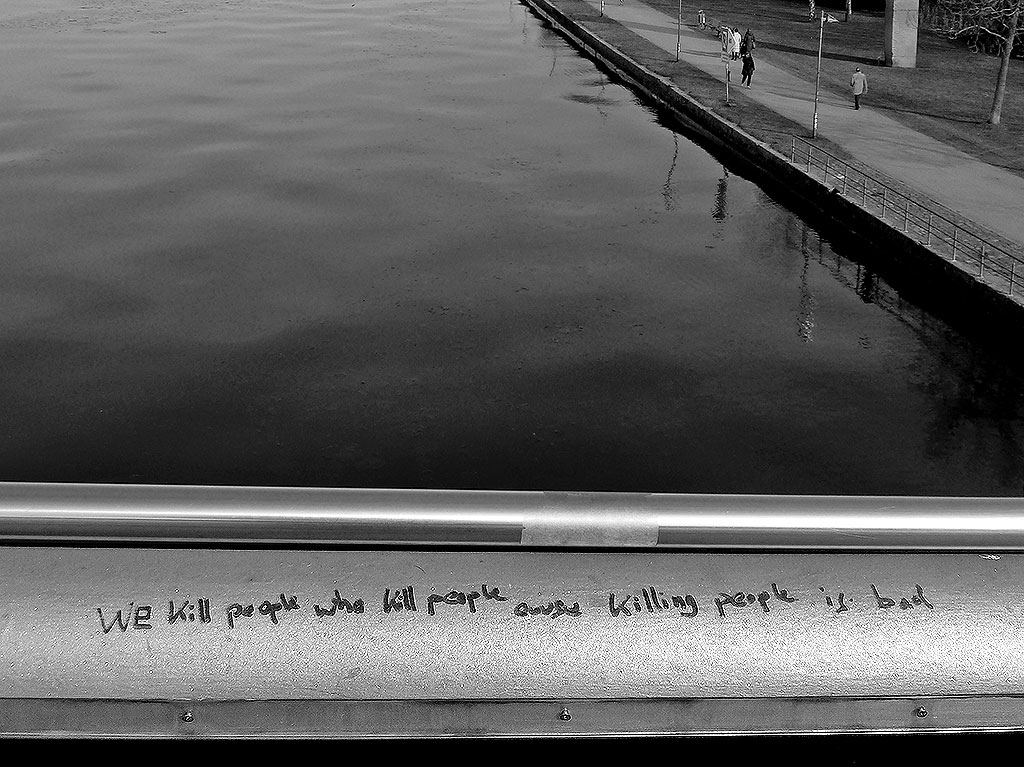 WE kill people who kill people cause killing people is bad